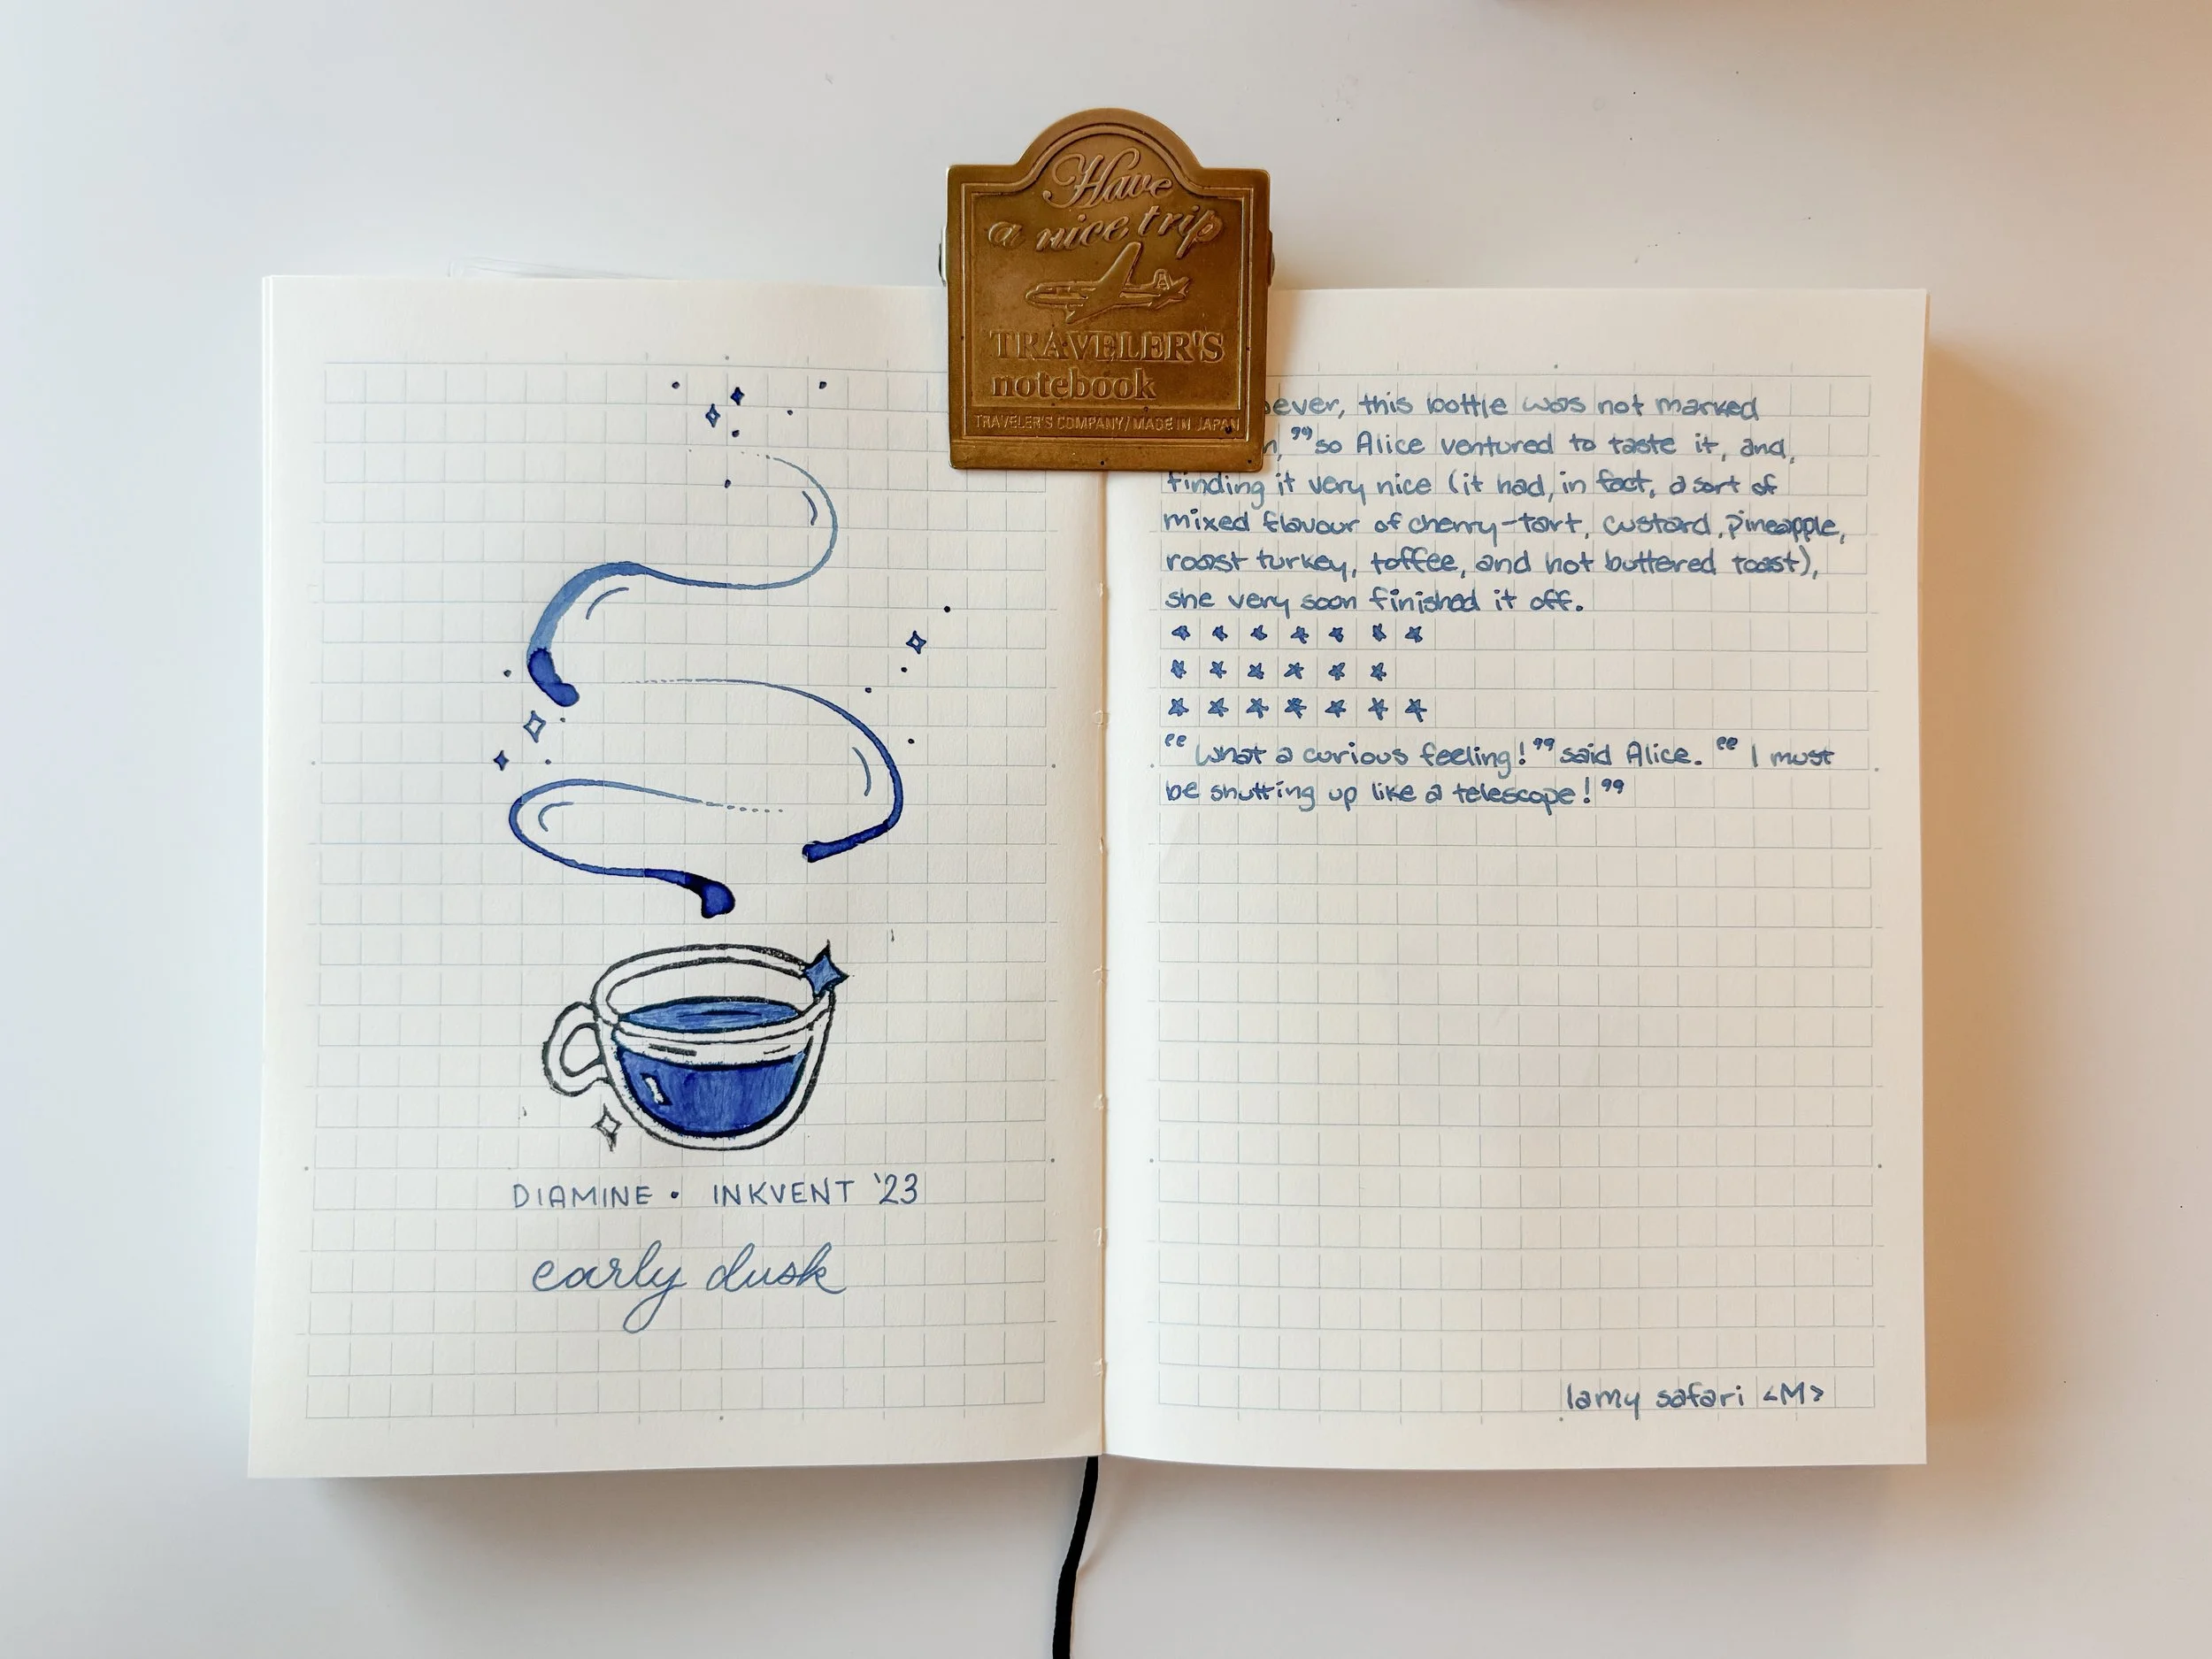 Have
a nice trip
TRAVELER'S
notebook
TRAVELER'S COMPANY/MADE IN JAPAN
DIAMINE • INKVENT '23
early dusk
ever, this bottle was not marked
," so Alice ventured to taste it, and,
finding it very nice (it had, in fact, a sort of
mixed flavour of cherry-tart, custard, pineapple,
roast turkey, toffee, and hot buttered toast),
she very soon finished it off.
★ ★ ★ ★ ★ ★ ★
★ ★ ★ ★ ★ ★
★ ★ ★ ★ ★ ★ ★
"What a curious feeling!" said Alice. "I must
be shutting up like a telescope!"
lamy safari <M>